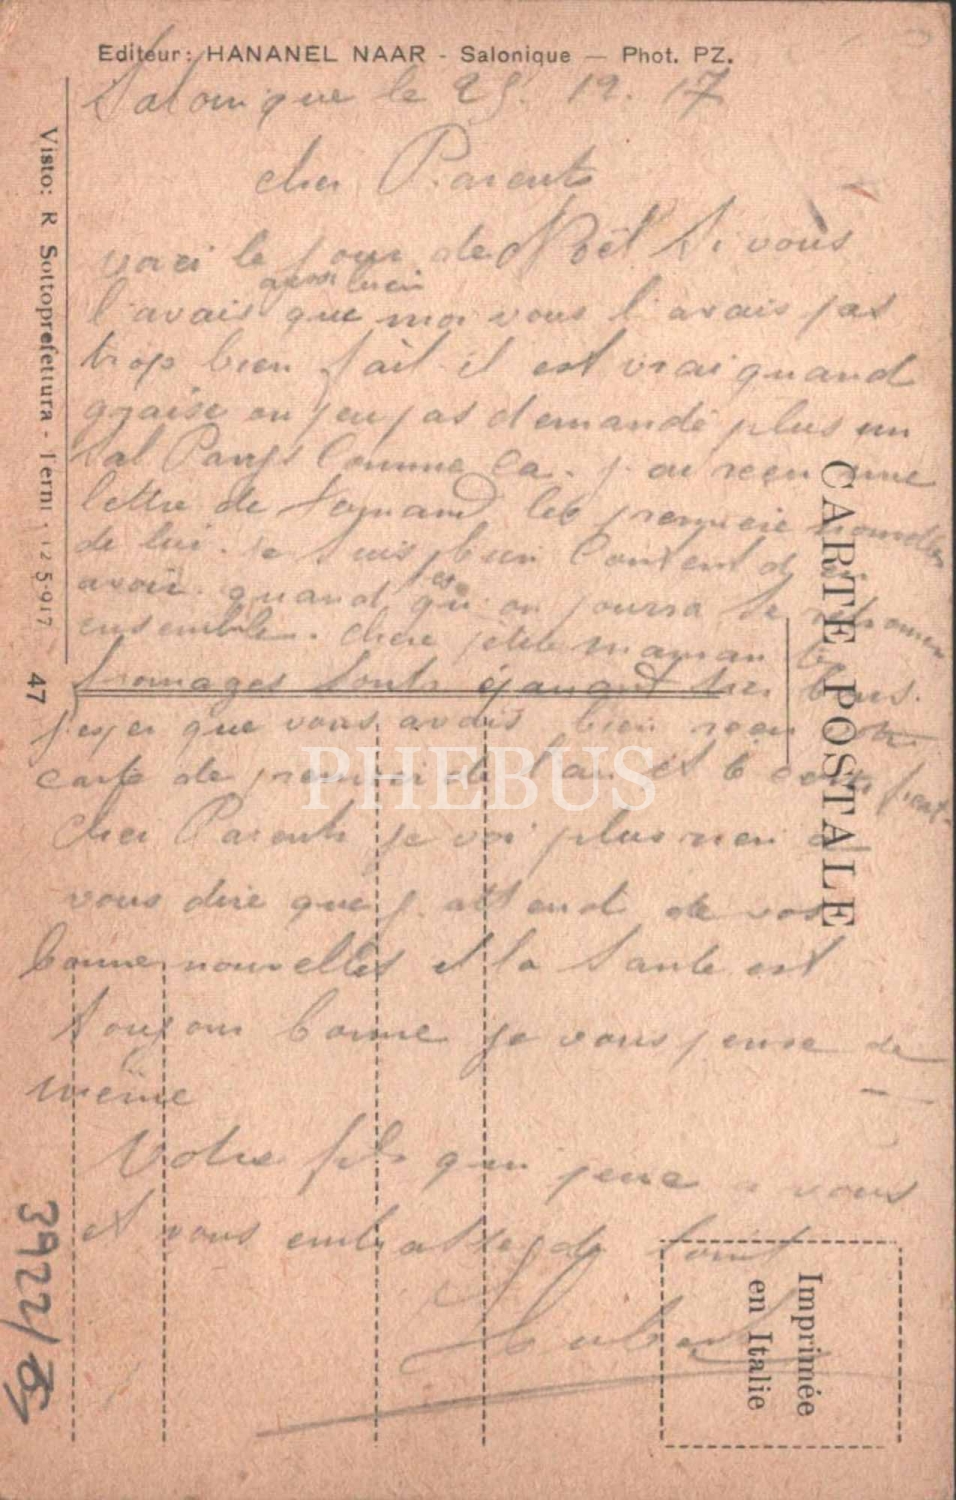 Editeur: HANANEL NAAR - Salonique — Phot. PZ.
Salonique le 25. 12. 17
cher Parents
voici le jour de Noël si vous
aussi bien
l'avais que moi vous l'avais pas
trop bien fait il est vrai quand
on peu pas demandé plus un
comme ça. j ai reçu une
lettre de les premiere nouvelles
de lui. je suis bien content d en
avoir quand es qu on pourra se retrouver
ensemble. chere petite maman les
fromages sont
j'esper que vous avais bien reçu
carte de premier de l'an et le
cher Parents je voi plus rien a
vous dire que j attend de vos
bonne nouvelles et la sante est
toujour bonne je vous pense de
même
Votre fils qui pense a vous
et vous embrasse de loint
Hubert
CARTE POSTALE
Imprimée
en Italie
Visto: R Sottoprefettura - Terni - 12-5-917
47
3922/
PHEBUS